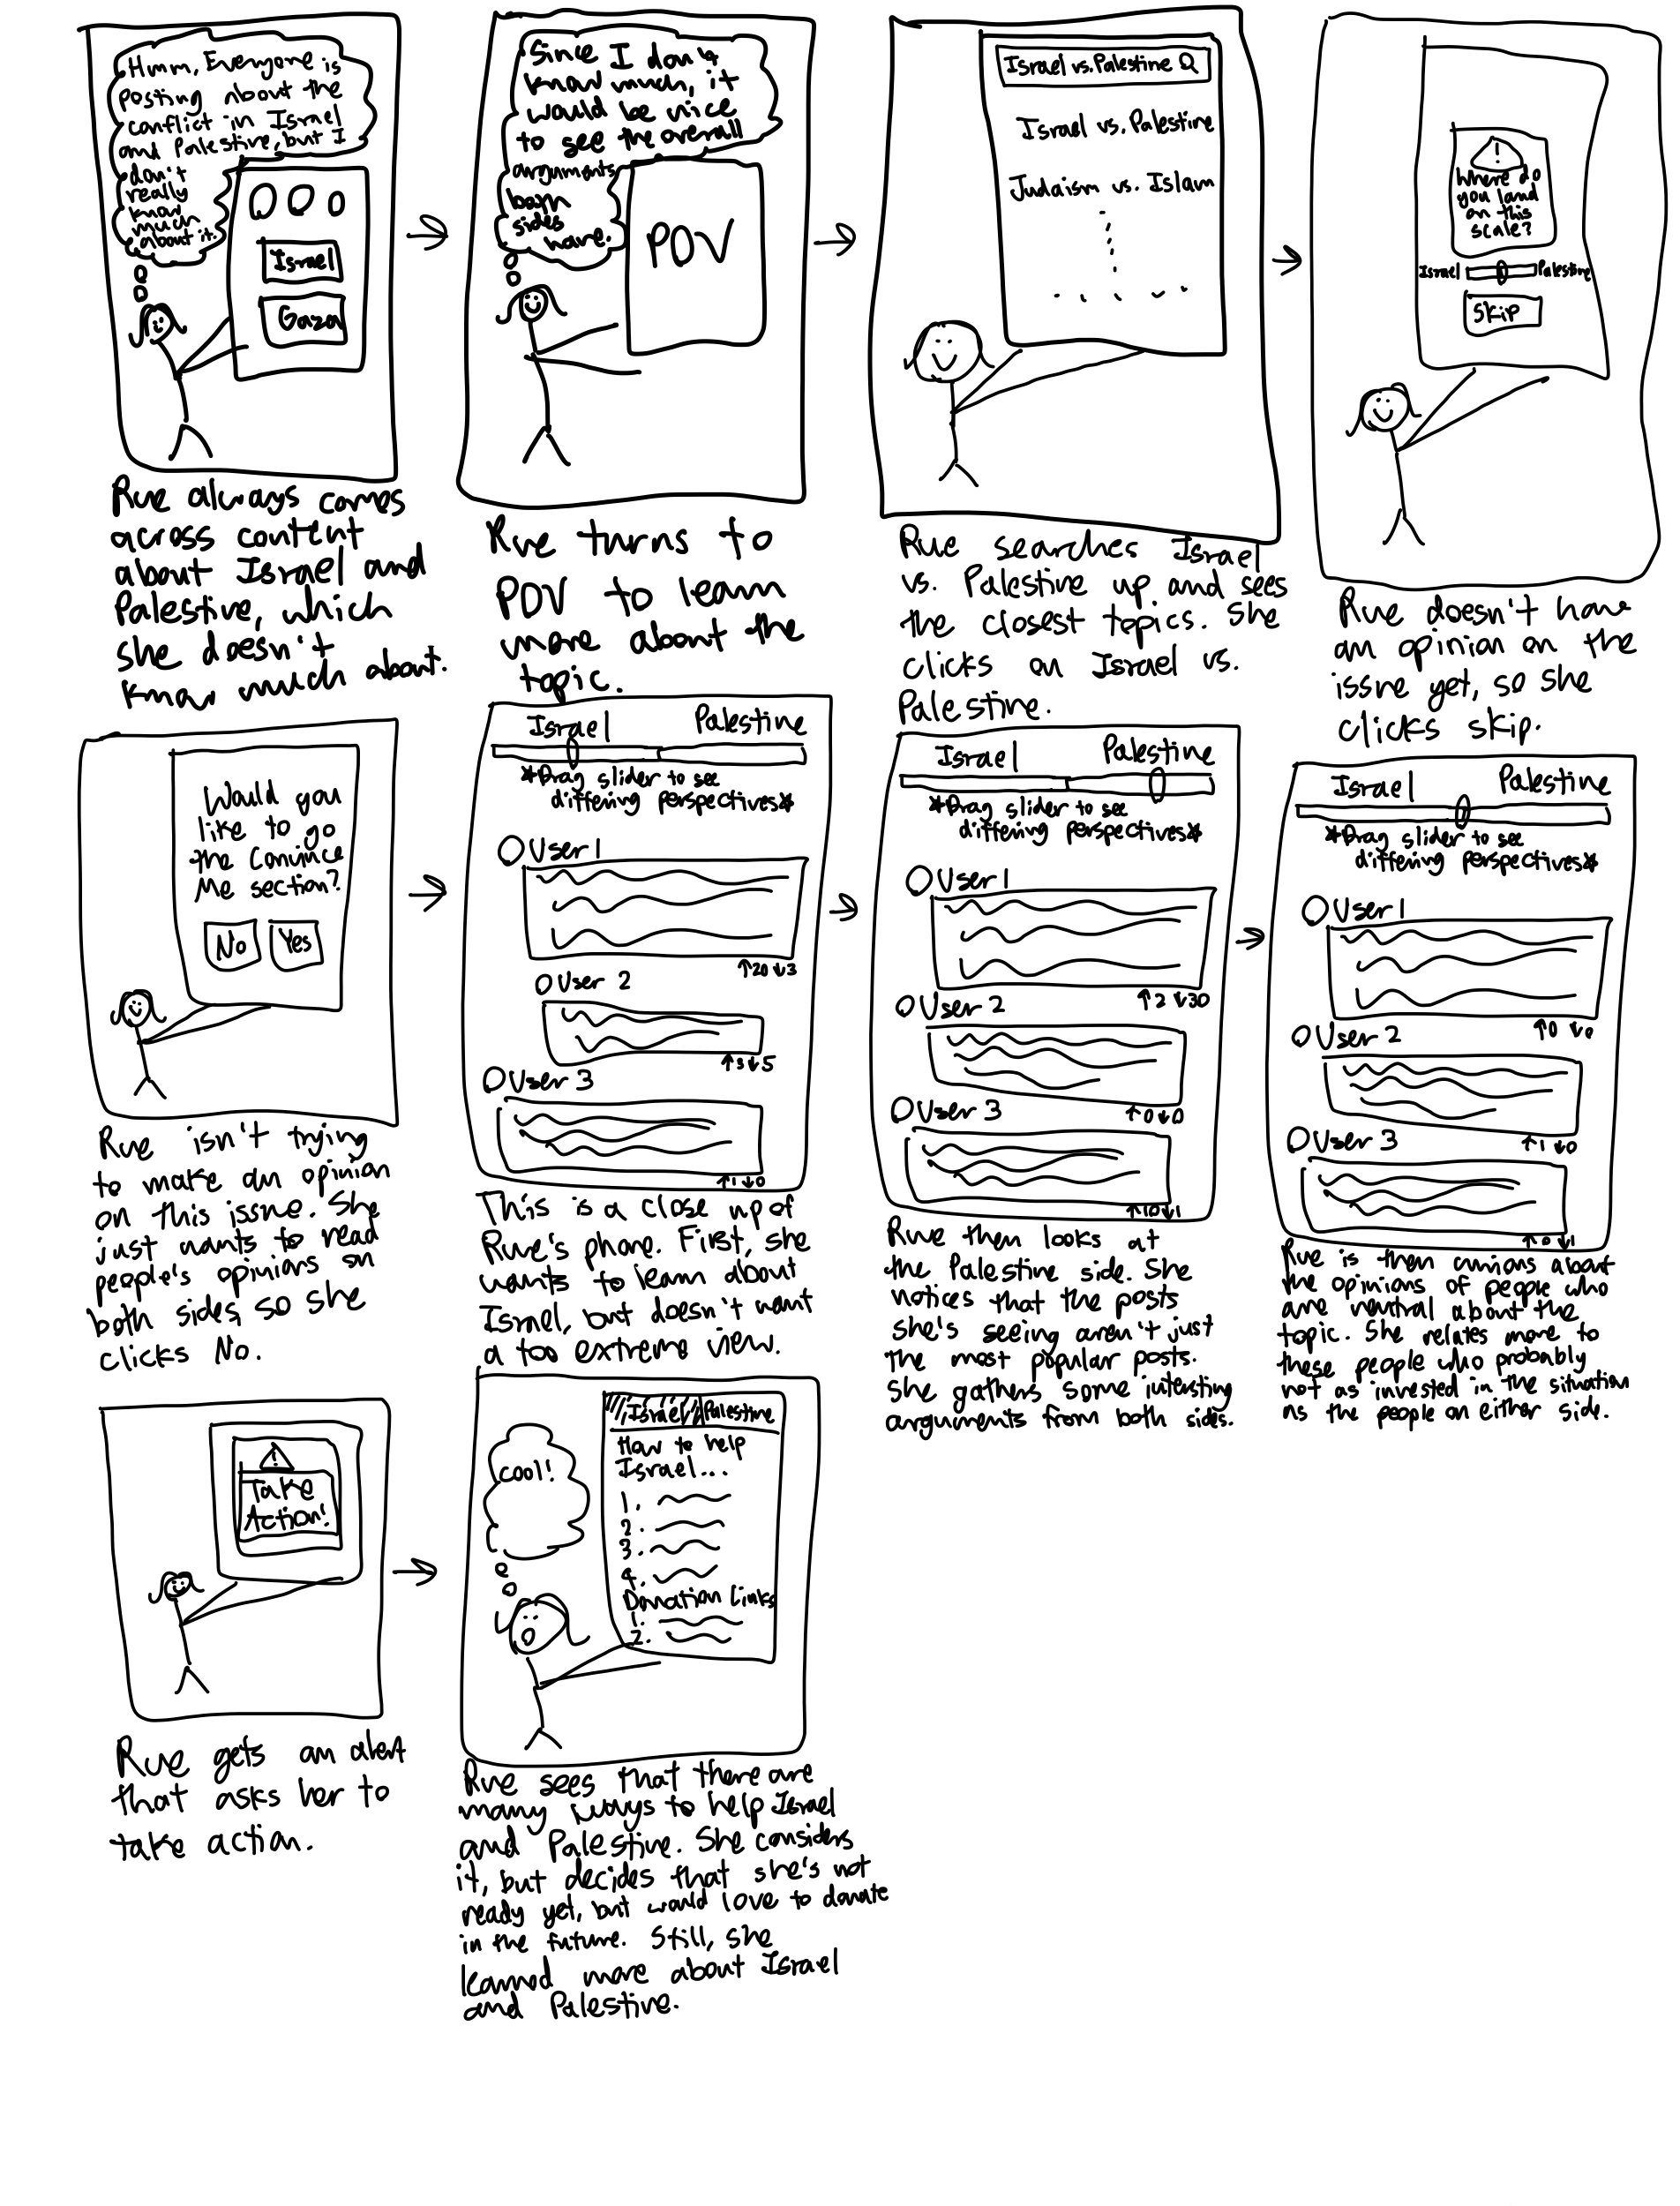 Hmm, Everyone is
posting about the
conflict in Israel
and Palestine, but I
don't
really
know
much
about it.
Israel
Gaza
Rue always comes
across content
about Israel and
Palestine, which
she doesn't
know much about.
Since I don't
know much, it
would be nice
to see the overall
arguments
both
sides
have.
POV
Rue turns to
POV to learn
more about the
topic.
Israel vs. Palestine
Israel vs. Palestine
Judaism vs. Islam
Rue searches Israel
vs. Palestine up and sees
the closest topics. She
clicks on Israel vs.
Palestine.
!
Where do
you land
on this
scale?
Israel Palestine
Skip
Rue doesn't have
an opinion on the
issue yet, so she
clicks skip.
Would you
like to go
the Convince
Me section?
No Yes
Rue isn't trying
to make an opinion
on this issue. She
just wants to read
people's opinions on
both sides, so she
clicks No.
Israel Palestine
*Drag slider to see
differing perspectives*
User 1
↑20 ↓3
User 2
↑3 ↓5
User 3
↑1 ↓0
This is a close up of
Rue's phone. First, she
wants to learn about
Israel, but doesn't want
a too extreme view.
Israel Palestine
*Drag slider to see
differing perspectives*
User 1
↑2 ↓30
User 2
↑0 ↓0
User 3
↑10 ↓1
Rue then looks at
the Palestine side. She
notices that the posts
she's seeing aren't just
the most popular posts.
She gathers some intersting
arguments from both sides.
Israel Palestine
*Drag slider to see
differing perspectives*
User 1
↑0 ↓0
User 2
↑1 ↓0
User 3
↑0 ↓1
Rue is then curious about
the opinions of people who
are neutral about the
topic. She relates more to
these people who probably
not as invested in the situation
as the people on either side.
!
Take
Action!
Rue gets an alert
that asks her to
take action.
cool!
Israel Palestine
How to help
Israel...
1.
2.
3.
4.
Donation Links
1.
2.
Rue sees that there are
many ways to help Israel
and Palestine. She considers
it, but decides that she's not
ready yet, but would love to donate
in the future. Still, she
learned more about Israel
and Palestine.